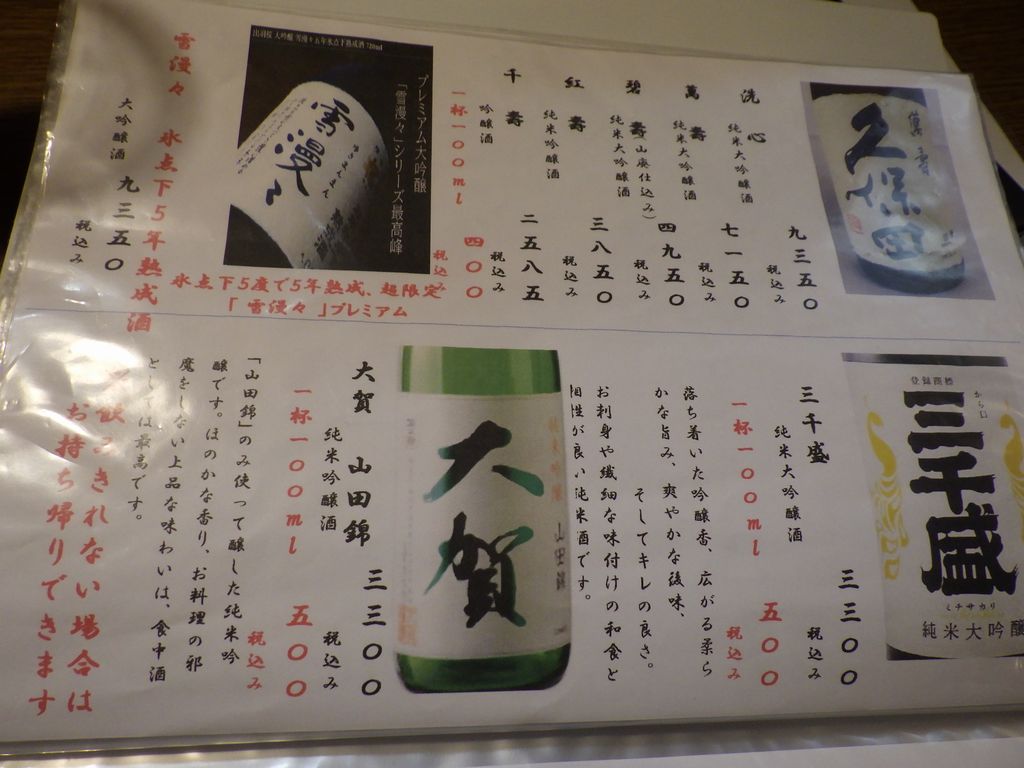 久保田
萬寿
洗心
純米大吟醸酒
九三五〇
税込み
萬寿
純米大吟醸酒
七一五〇
税込み
碧寿(山廃仕込み)
純米大吟醸酒
四九五〇
税込み
紅寿
純米吟醸酒
三八五〇
税込み
千寿
吟醸酒
二五八五
税込み
一杯一〇〇ml
四〇〇
税込み
出羽桜 大吟醸 雪漫々五年氷点下熟成酒 720ml
プレミアム大吟醸
「雪漫々」シリーズ最高峰
雪漫々
氷点下5度で5年熟成、超限定
「雪漫々」プレミアム
雪漫々 氷点下5年熟成酒
大吟醸酒 九三五〇
税込み
登録商標
から口
三千盛
ミチサカリ
純米大吟醸
三千盛
純米大吟醸酒
三三〇〇
税込み
一杯一〇〇ml
五〇〇
税込み
落ち着いた吟醸香、広がる柔ら
かな旨み、爽やかな後味、
そしてキレの良さ。
お刺身や繊細な味付けの和食と
相性が良い純米酒です。
純米吟醸 山田錦
大賀
大賀 山田錦
純米吟醸酒
三三〇〇
税込み
一杯一〇〇ml
五〇〇
税込み
「山田錦」のみ使って醸した純米吟
醸です。ほのかな香り、お料理の邪
魔をしない上品な味わいは、食中酒
としては最高です。
飲みきれない場合は
お持ち帰りできます